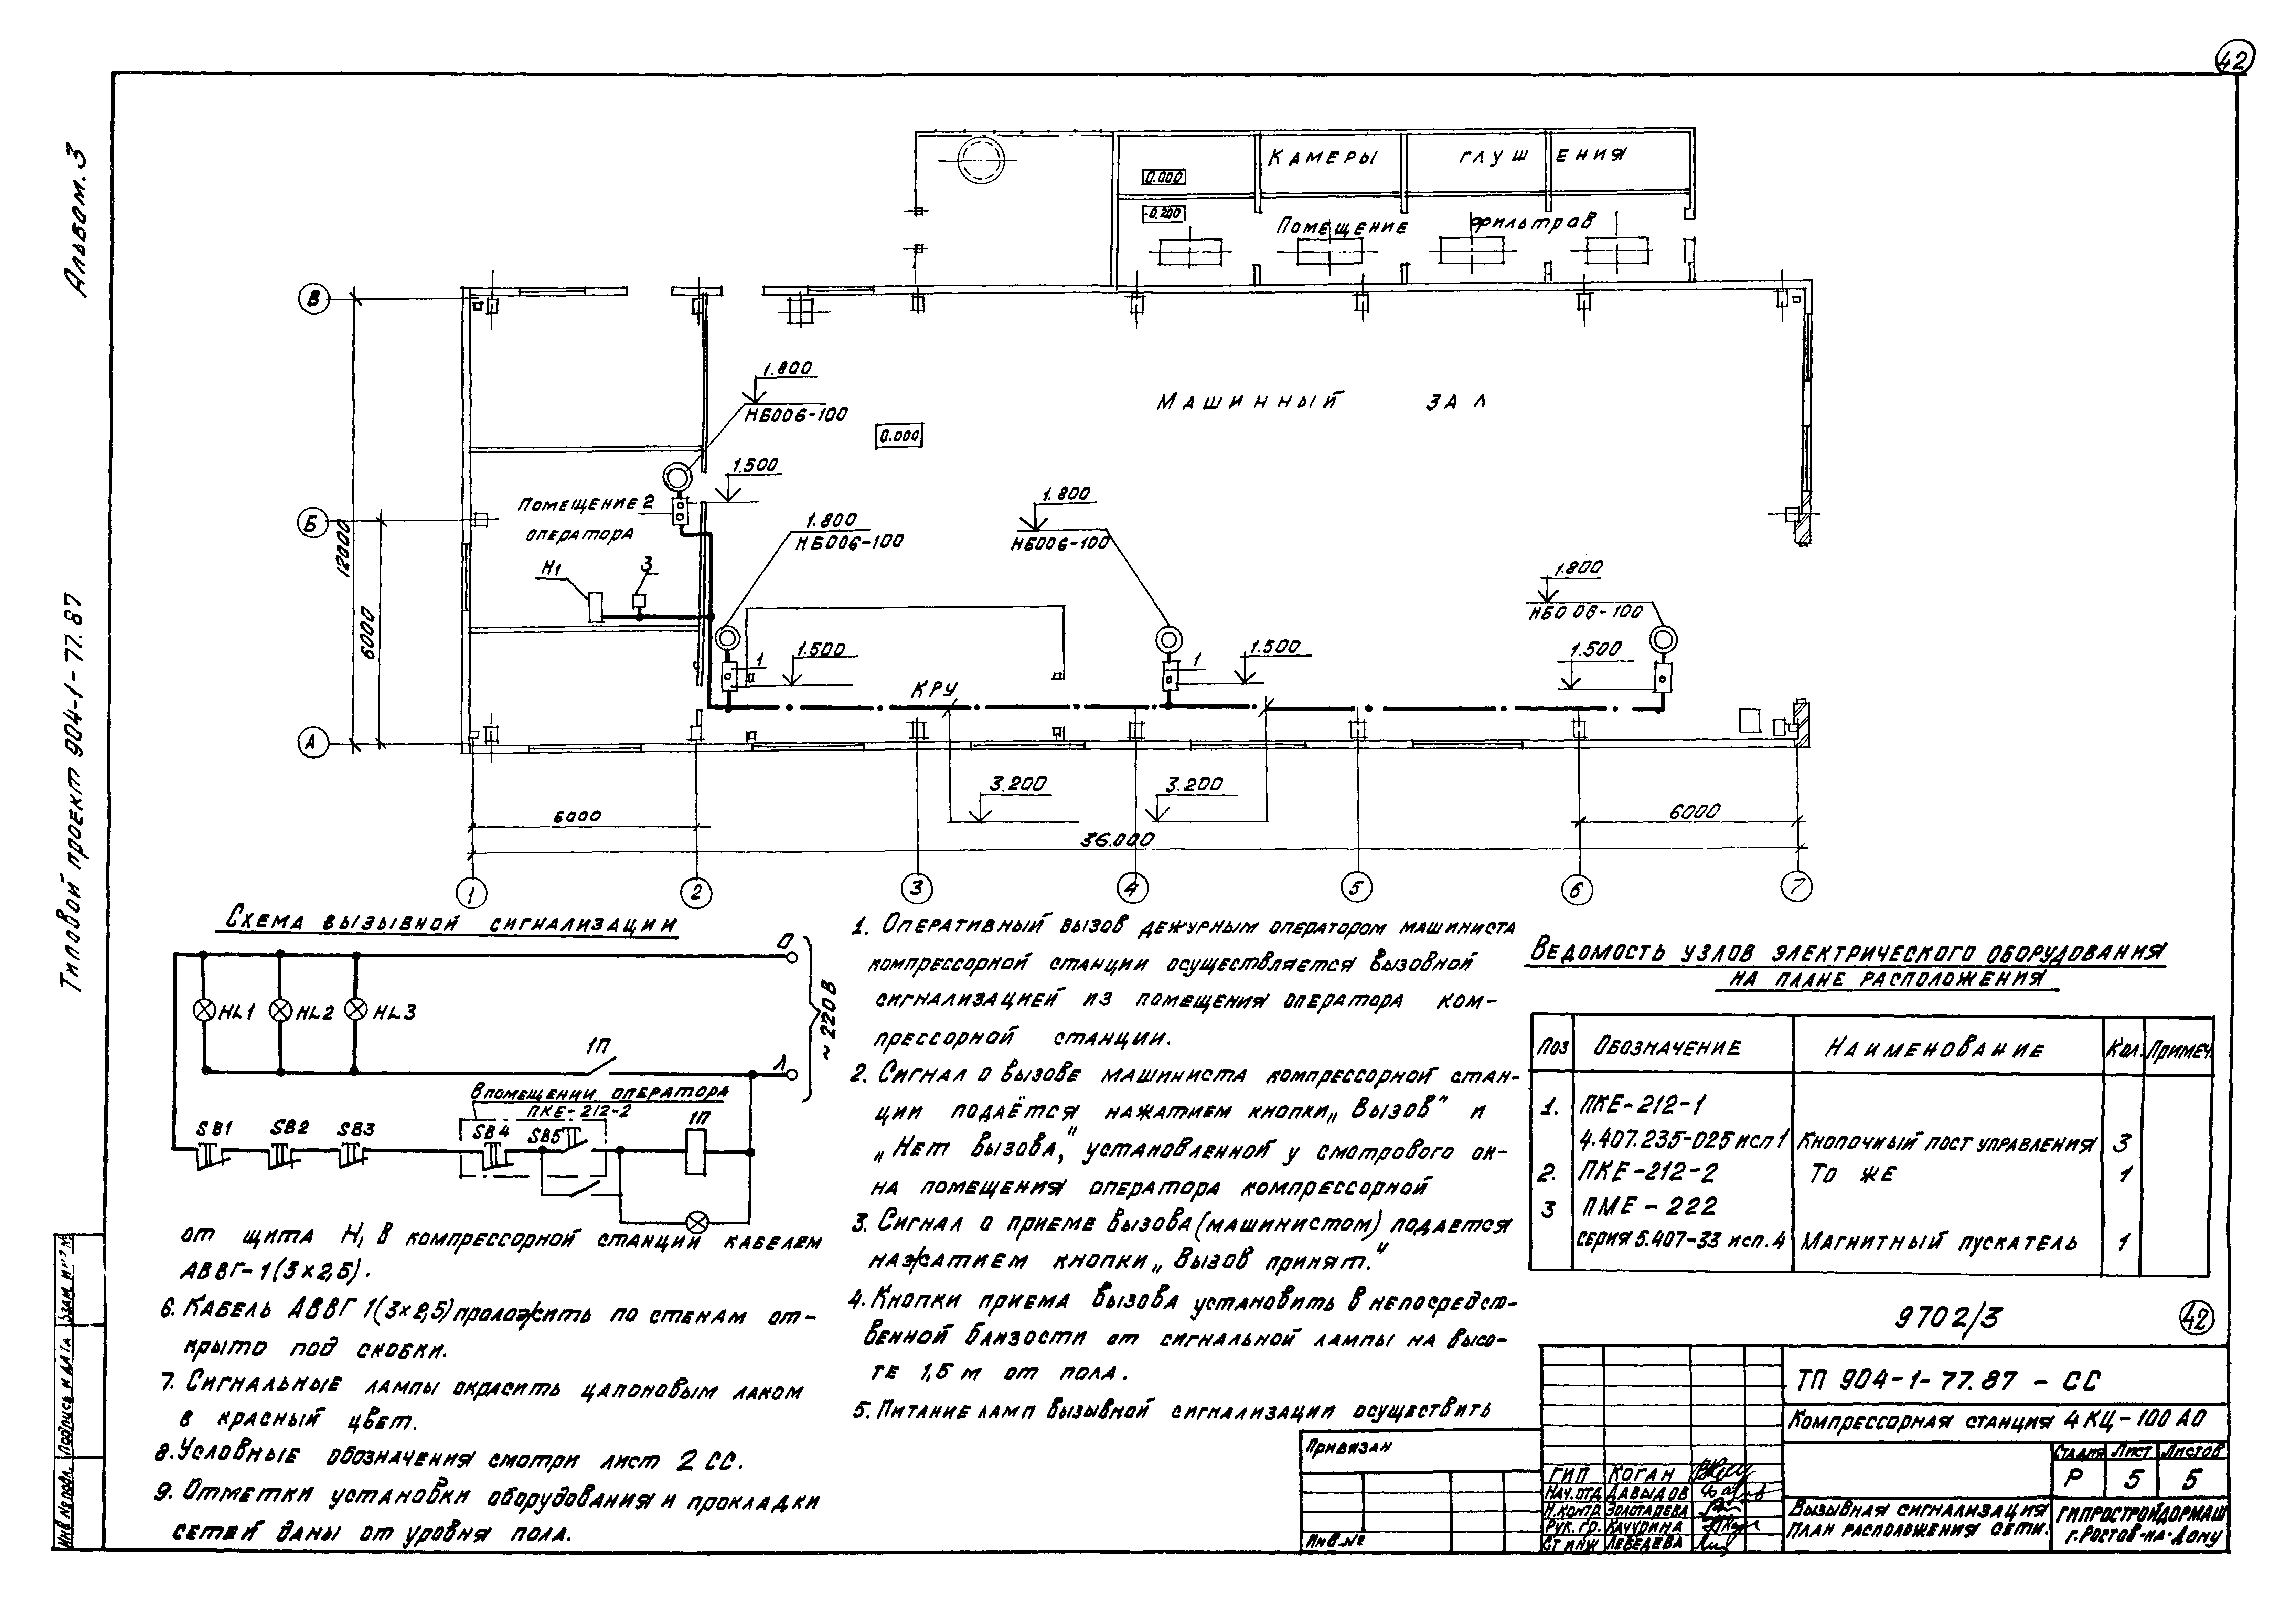 42
Альбом. 3
Типовой проект 904-1-77.87
Камеры глушения
0.000
-0.200
Помещение фильтров
В
Б
А
12000
6000
1.800
НБ006-100
0.000
Машинный зал
1.500
Помещение 2
оператора
Н1
3
1.800
НБ006-100
1.800
НБ006-100
1.800
НБ006-100
1
1.500
1
1.500
1.500
КРУ
3.200
3.200
6000
6000
36.000
1
2
3
4
5
6
7
Схема вызывной сигнализации
О
HL1
HL2
HL3
~220В
1П
Л
В помещении оператора
ПКЕ-212-2
SB1
SB2
SB3
SB4
SB5
1П
1. Оперативный вызов дежурным оператором машиниста
компрессорной станции осуществляется вызовной
сигнализацией из помещения оператора ком-
прессорной станции.
2. Сигнал о вызове машиниста компрессорной стан-
ции подаётся нажатием кнопки „Вызов" и
„Нет вызова," установленной у смотрового ок-
на помещения оператора компрессорной
3. Сигнал о приеме вызова (машинистом) подается
нажатием кнопки „Вызов принят."
4. Кнопки приема вызова установить в непосредст-
венной близости от сигнальной лампы на высо-
те 1,5 м от пола.
5. Питание ламп вызывной сигнализации осуществить
от щита Н1 в компрессорной станции кабелем
АВВГ-1(3×2,5).
6. Кабель АВВГ 1(3×2,5) проложить по стенам от-
крыто под скобки.
7. Сигнальные лампы окрасить цапоновым лаком
в красный цвет.
8. Условные обозначения смотри лист 2 СС.
9. Отметки установки оборудования и прокладки
сетей даны от уровня пола.
Ведомость узлов электрического оборудования
на плане расположения
Поз Обозначение Наименование Кол. Примеч.
1. ПКЕ-212-1
4.407.235-025 исп 1 Кнопочный пост управления 3
2. ПКЕ-212-2 То же 1
3 ПМЕ-222
серия 5.407-33 исп. 4 Магнитный пускатель 1
9702/3
42
ТП 904-1-77.87-СС
Компрессорная станция 4КЦ-100АО
Стадия Лист Листов
Р 5 5
Вызывная сигнализация
План расположения сети.
Гипростройдормаш
г. Ростов-на-Дону
Привязан
Инв.№
ГИП Коган
Нач.отд Давыдов
Н.контр. Золотарева
Рук. гр. Качурина
Ст инж Лебедева
Взам. инв №
Подпись и дата
Инв № подл.